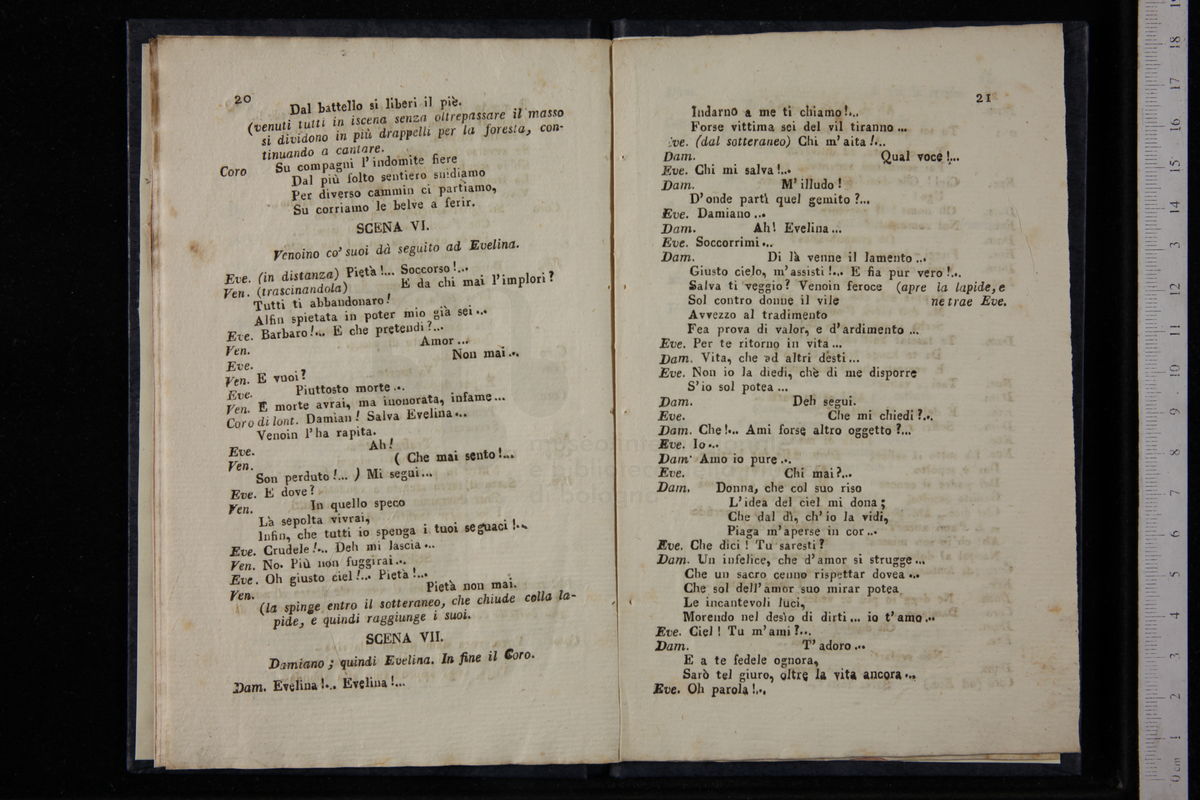 20
Dal battello si liberi il piè.
(venuti tutti in iscena senza oltrepassare il masso
si dividono in più drappelli per la foresta, con-
tinuando a cantare.
Coro Su compagni l'indomite fiere
Dal più folto sentiero snidiamo
Per diverso cammin ci partiamo,
Su corriamo le belve a ferir.
SCENA VI.
Venoino co' suoi dà seguito ad Evelina.
Eve. (in distanza) Pietà!... Soccorso!...
Ven. (trascinandola) E da chi mai l'implori?
Tutti ti abbandonaro!
Alfin spietata in poter mio già sei...
Eve. Barbaro!... E che pretendi?...
Ven. Amor...
Eve. Non mai...
Ven. E vuoi?
Eve. Piuttosto morte...
Ven. E morte avrai, ma inonorata, infame...
Coro di lont. Damian! Salva Evelina...
Venoin l'ha rapita.
Eve. Ah!
Ven. ( Che mai sento!...
Son perduto!... ) Mi segui...
Eve. E dove?
Ven. In quello speco
Là sepolta vivrai,
Infin, che tutti io spenga i tuoi seguaci!...
Eve. Crudele!... Deh mi lascia...
Ven. No. Più non fuggirai...
Eve. Oh giusto ciel!... Pietà!...
Ven. Pietà non mai.
(la spinge entro il sotteraneo, che chiude colla la-
pide, e quindi raggiunge i suoi.
SCENA VII.
Damiano; quindi Evelina. In fine il Coro.
Dam. Evelina!... Evelina!...
21
Indarno a me ti chiamo!...
Forse vittima sei del vil tiranno...
Eve. (dal sotteraneo) Chi m'aita!...
Dam. Qual voce!...
Eve. Chi mi salva!...
Dam. M'illudo!
D'onde partì quel gemito?...
Eve. Damiano...
Dam. Ah! Evelina...
Eve. Soccorrimi...
Dam. Di là venne il lamento...
Giusto cielo, m'assisti!... E fia pur vero!...
Salva ti veggio? Venoin feroce (apre la lapide, e
Sol contro donne il vile ne trae Eve.
Avvezzo al tradimento
Fea prova di valor, e d'ardimento...
Eve. Per te ritorno in vita...
Dam. Vita, che ad altri dèsti...
Eve. Non io la diedi, chè di me disporre
S'io sol potea...
Dam. Deh segui.
Eve. Che mi chiedi?...
Dam. Che!... Ami forse altro oggetto?...
Eve. Io...
Dam. Amo io pure...
Eve. Chi mai?...
Dam. Donna, che col suo riso
L'idea del ciel mi dona;
Che dal dì, ch'io la vidi,
Piaga m'aperse in cor...
Eve. Che dici! Tu saresti?
Dam. Un infelice, che d'amor si strugge...
Che un sacro cenno rispettar dovea...
Che sol dell'amor suo mirar potea
Le incantevoli luci,
Morendo nel desìo di dirti... io t'amo...
Eve. Ciel! Tu m'ami?...
Dam. T'adoro...
E a te fedele ognora,
Sarò tel giuro, oltre la vita ancora...
Eve. Oh parola!...